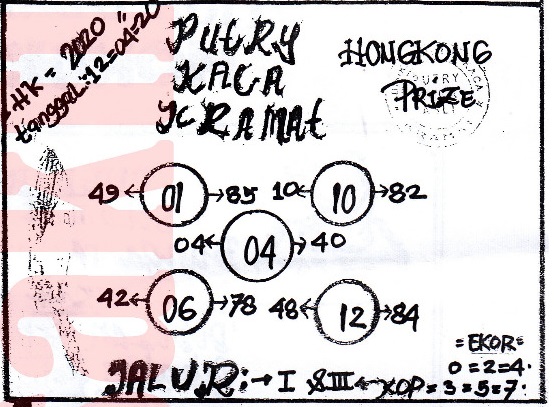 HK = 2020 "
tanggal: 12=04=20
PUTRY
KACA
KRAMAT
HONGKONG
PRIZE
49 ← 01 → 85
10 ← 10 → 82
04 ← 04 → 40
42 ← 06 → 78
48 ← 12 → 84
=EKOR=
0=2=4.
JALUR:→ I & III ← KOP = 3 = 5 = 7.